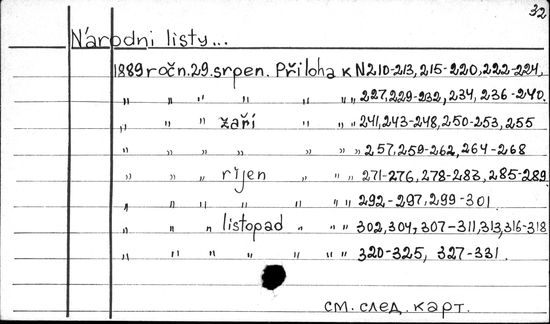 32
Národni listy...
1889 ročn. 29. srpen. Přiloha к N210-213, 215-220, 222-224,
„ „ „ „ „ „ „ 227, 229-232, 234, 236-240.
„ „ „ žaří „ „ „ 241, 243-248, 250-253, 255
„ „ „ „ „ „ „ 257, 259-262, 264-268
„ „ „ rijen „ „ „ 271-276, 278-283, 285-289
„ „ „ „ „ „ „ 292-297, 299-301.
„ „ „ listopad „ „ „ 302, 304, 307-311, 313, 316-318
„ „ „ „ „ „ „ 320-325, 327-331.
см. след. карт.